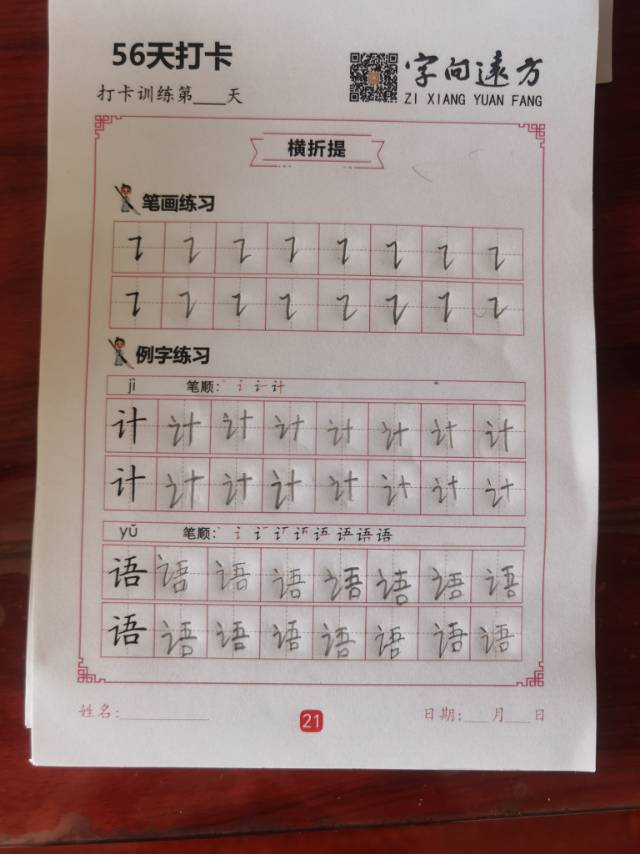 56天打卡
字向远方
打卡训练第___天
ZI XIANG YUAN FANG
横折提
笔画练习
㇊ ㇊ ㇊ ㇊ ㇊ ㇊ ㇊ ㇊
㇊ ㇊ ㇊ ㇊ ㇊ ㇊ ㇊ ㇊
例字练习
jì 笔顺:
计 计 计 计 计 计 计 计
计 计 计 计 计 计 计 计
yǔ 笔顺:
语 语 语 语 语 语 语 语
语 语 语 语 语 语 语 语
姓名:__________ 21 日期:___月___日